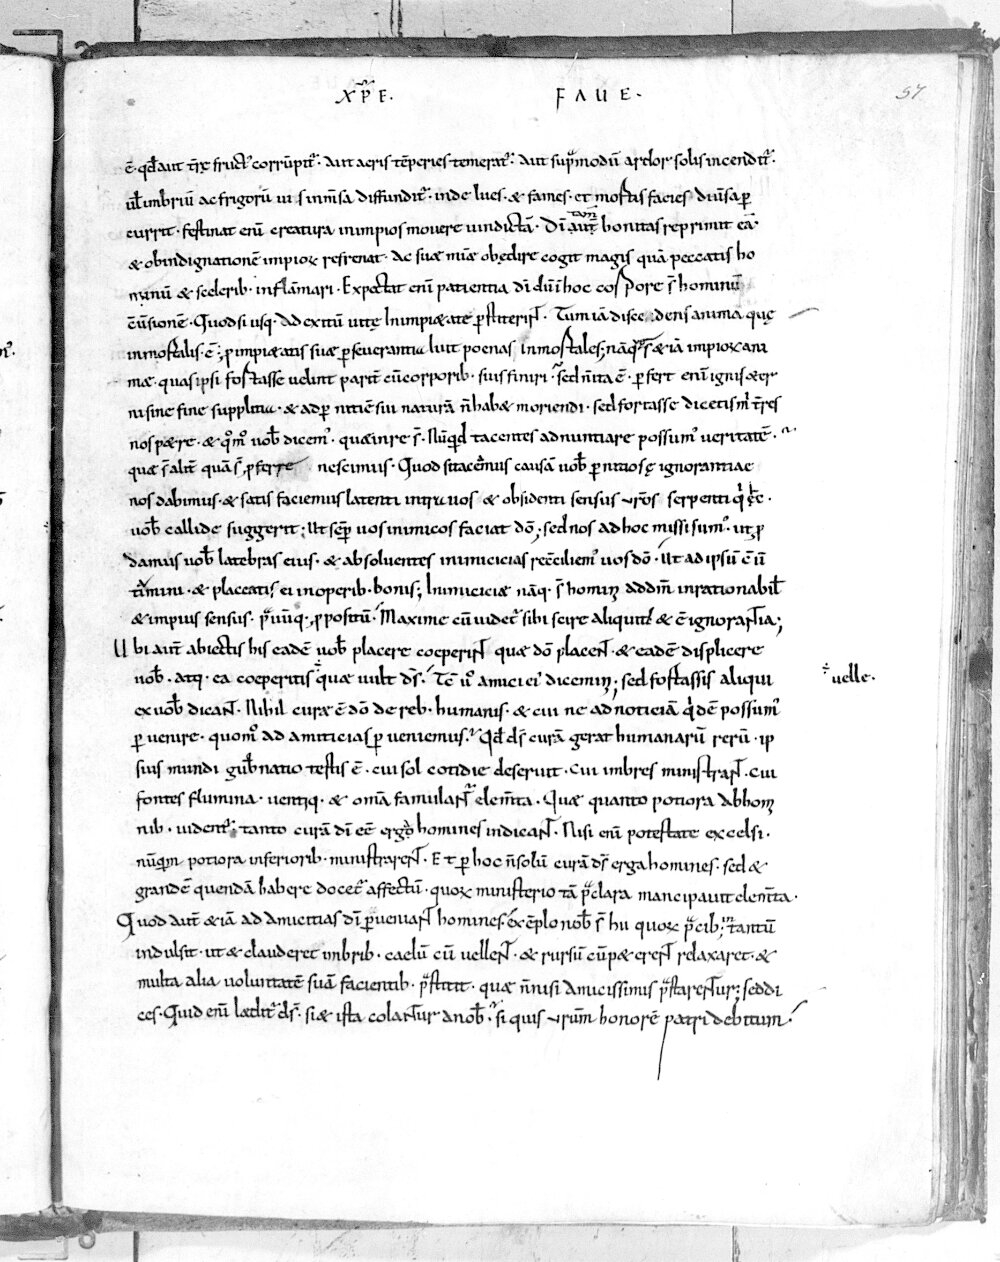 XP̅E. FAUE. 57
ē. qđ aut t̄rȩ fruct᷒ corrūpit᷒. Aut aeris tēperies temerat᷒. Aut sup̄modū ardor solis incendit᷒.
ul̄ imbriū ac frigorū uis inm̄sa diffundit᷒. inde lues. & fames. et mortis facies diuersa ꝑ
currit. festinat enī creatura in impios mouere uindictā. Dī aut̄ tam̄ bonitas reprimit eā
& ob indignationē impioꝝ refrenat. Ac suae miae obȩdire cogit magis quā peccatis ho
minū & scelerib. inflāmari. Expectat enī patientia dī dū in hoc corpore s̄ hominū
c̄uersionē. Quod si usq. ad exitū uitȩ in impi&ate ꝑstiterint. Tum iā discedens anima quȩ
inmortalis. ē; ꝓ impi&atis suae ꝑseuerantia luit poenas inmortales; nāq. s̄ &iā impioꝝ ani
mae. quas ipsi fortasse uelint parit̄ cū corporib. suis finiri. sed n̄ ita ē. ꝑfert enī ignis &er
ni sine fine supplitia. & ad ꝑnitiē sui naturā n̄ hab& moriendi. sed fortasse dicetis m̄ t̄res
nos p&re. & q̄m̄ uob̄ dicem᷒. quae in re s̄. Nūqd̄ tacentes adnuntiare possum᷒ ueritatē.
quae s̄ alit̄ quā s̄ ꝓferre nescimus. Quod si tacem̄us causā uob̄ ꝑnitiosȩ ignorantiae
nos dabimus. & satis faciemus latenti intra uos & obsidenti sensus ur̄os serpenti q̄ ȩc̄.
uob̄ callide suggerit; Ut sēꝑ uos inimicos faciat dō; sed nos ad hoc missi sum᷒. ut ꝓ
damus uob̄ latebras eius. & absoluentes inimicicias recc̄iliem᷒ uos dō. Ut ad ipsū c̄uer
tamini. & placeatis ei in operib. bonis; Inimiciciae nāq. s̄ homin ad dm̄ inrationabil̄
& impius sensus. prauūq. ꝓpositū. Maxime cū uidet᷒ sibi scire aliquit & ē ignorantia;
Ubi aut̄ abiectis his eadē uob̄ placere coeperint quae dō placent. & eadē displicere
uob̄. atq. ea coeperitis quae uult ds̄. Tc̄ u᷒ amici ei᷒ dicemini; sed fortassis aliqui uelle.
ex uob̄ dicant. Nihil curae ē dō de reb. humanis. & cui ne ad noticiā q̄dē possum᷒
ꝑuenire. quom᷒ ad amiticias ꝑueniemus. Qđ ds̄ curā gerat humanarū rerū. ip
sius mundi gub̄natio testis ē. cui sol cotidie deseruit. cui imbres ministrant. cui
fontes flumina. uentiq. & om̄a famulant᷒ elem̄ta. Quae quanto potiora ab hom
nib. uident᷒; tanto curā dī eē erga homines indicant. Nisi enī potestate excelsi.
nūqm̄ potiora inferiorib. ministrarent. Et ꝑ hoc n̄ solū curā ds̄ erga homines. sed &
grandē quendā habere docet᷒ affectū. quoꝝ ministerio tā p̄clara mancipauit elem̄ta.
Quod aut̄ &iā ad amicitias dī ꝑueniant homines. exēplo nob̄ s̄ hii quoꝝ p̄cib; in tantū
indulsit. ut & clauderet imbrib. caelū cū uellent. & rursū cū p&erent relaxaret. &
multa alia uoluntatē suā facientib. p̄stitit. quae n̄ nisi amicissimis p̄starentur; sed di
ces. Quid enī laedit᷒ ds̄. si & ista colantur a nob̄. si quis ur̄um honorē patri debitum